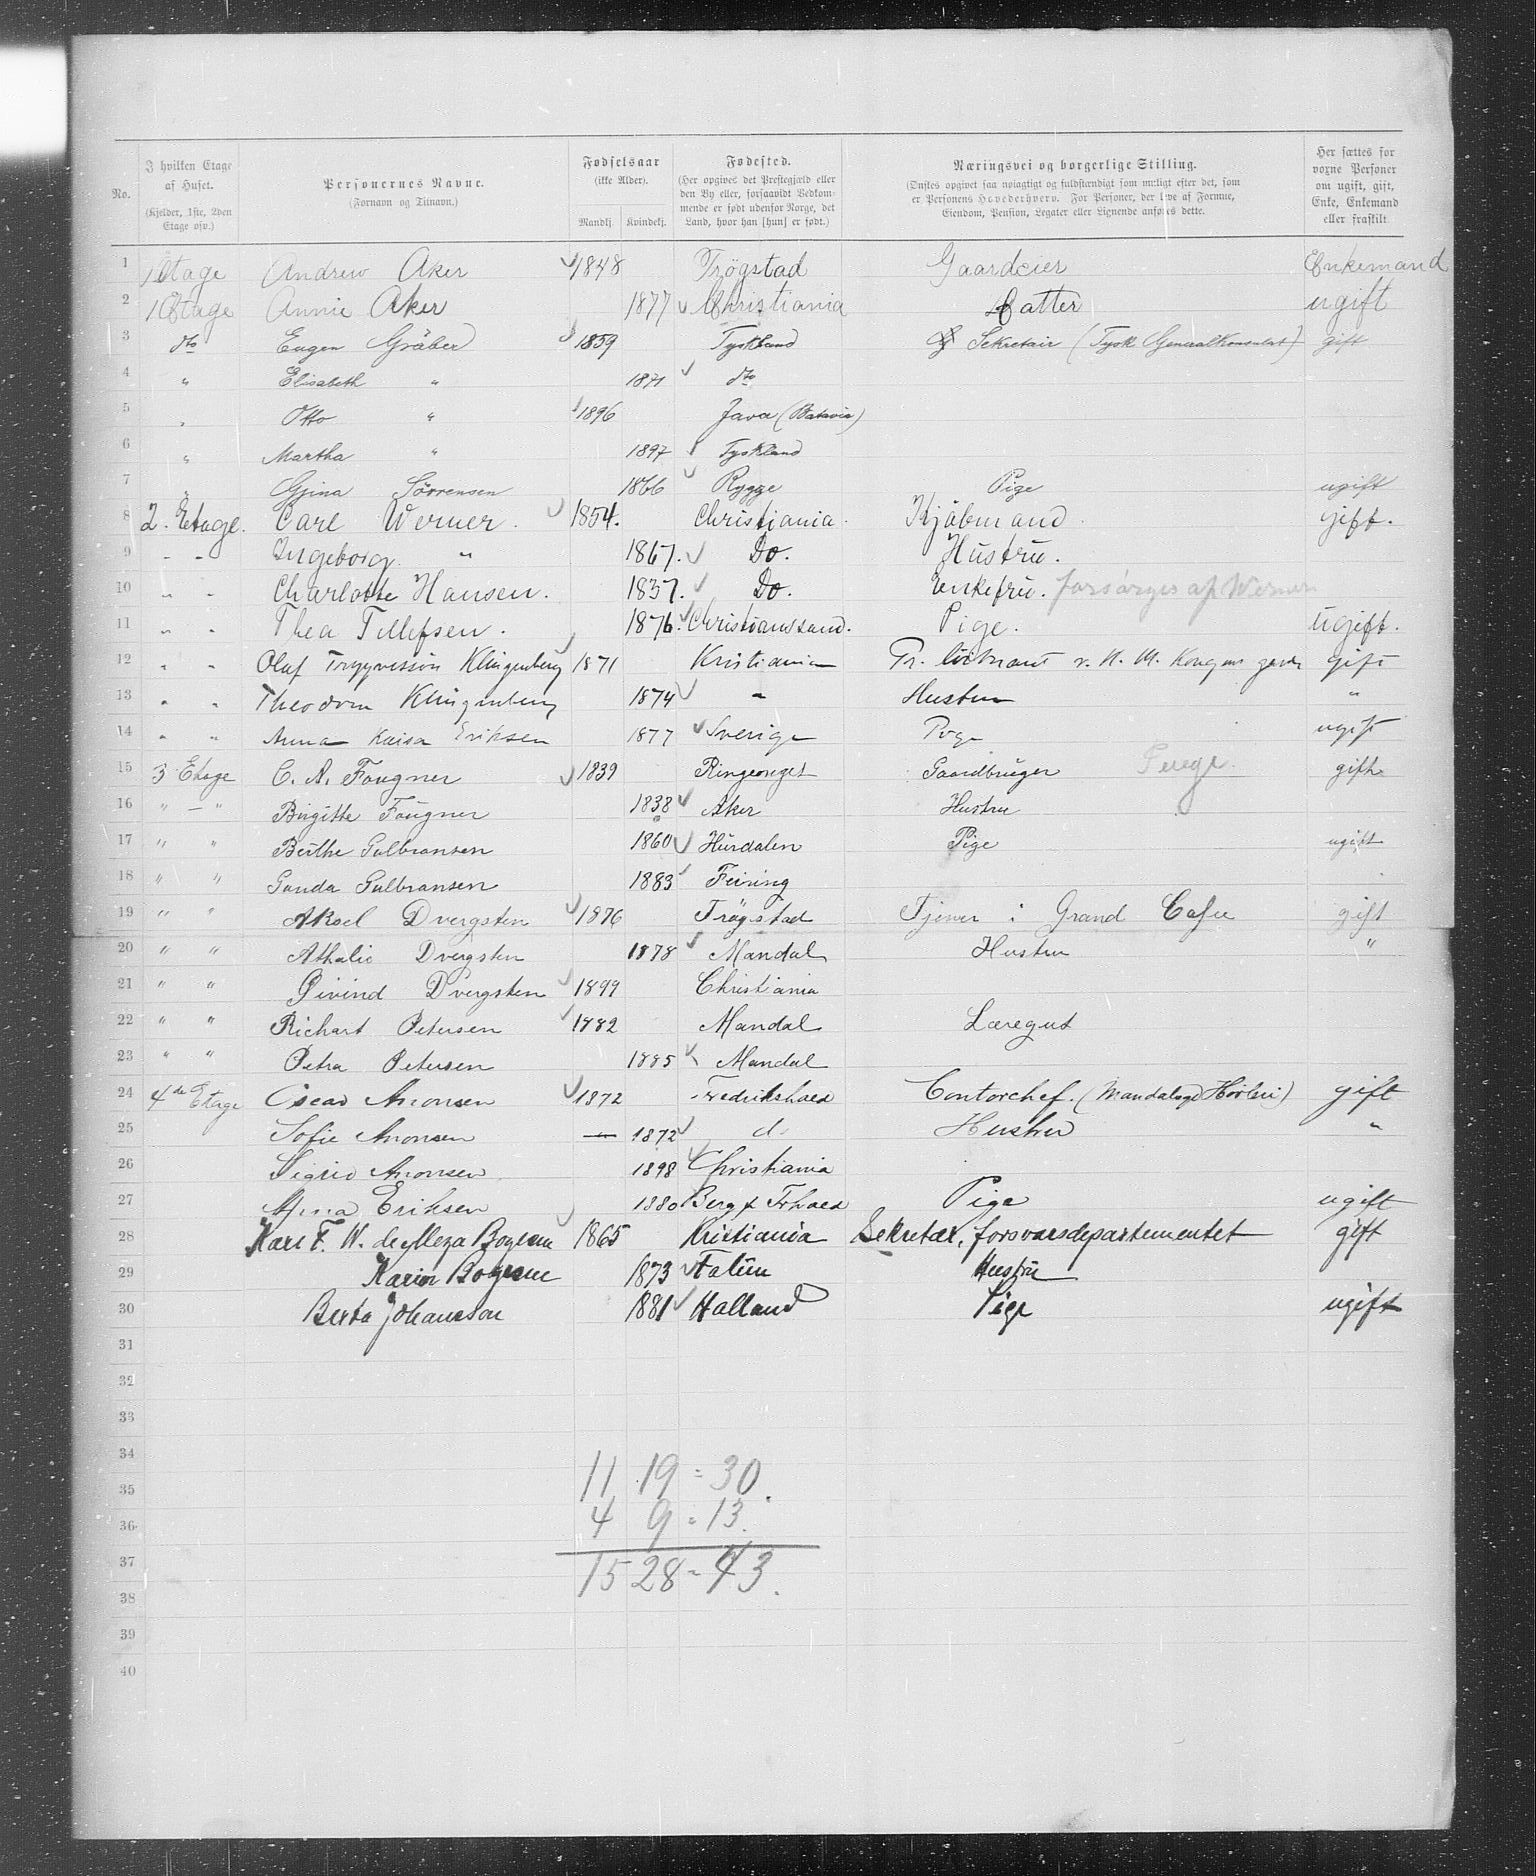 No. | I hvilken Etage af Huset. (Kjelder, 1ste, 2den Etage osv.) | Personernes Navne. (Fornavn og Tilnavn.) | Fødselsaar (ikke Alder). Mandkj. Kvindekj. | Fødested. (Her opgives det Prestegjæld eller den By eller, forsaavidt Vedkommende er født udenfor Norge, det Land, hvor han [hun] er født.) | Næringsvei og borgerlige Stilling. (Ønskes opgivet saa nøiagtigt og fuldstændigt som muligt efter det, som er Personens Hovederhverv. For Personer, der leve af Formue, Eiendom, Pension, Legater eller Lignende anføres dette.) | Her sættes for voxne Personer om ugift, gift, Enke, Enkemand eller fraskilt.
1 1 Etage Andrew Aker 1848 Trögstad Gaardeier Enkemand
2 1 Etage Annie Aker 1877 Christiania Datter ugift
3 dto Eugen Gräber 1859 Tyskland Sekretair (Tysk Generalkonsulat) gift
4 " Elisabeth " 1871 dto
5 " Otto " 1896 Java (Batavia)
6 " Martha " 1897 Tyskland
7 " Gjina Sörrensen 1866 Rygge Pige ugift
8 2. Etage. Carl Werner. 1854. Christiania. Kjöbmand gift.
9 " " Ingeborg " 1867. Do. Hustru.
10 " " Charlotte Hansen. 1837. Do. Enkefru. forsörges af Werner
11 " " Thea Tellefsen. 1876. Christianssand. Pige. Ugift.
12 " " Olaf Tryggvessön Klingenberg 1871 Kristiania Pr. löitnant v. H. M. Kongens garde gift
13 " " Theodora Klingenberg 1874 " Hustru "
14 " " Anna Kaisa Eriksen 1877 Sverige Pige ugift
15 3 Etage C. A. Fougner 1839 Ringeriget Gaardbruger gift
16 " — " Birgitte Fougner 1838 Aker Hustru
17 " " Berthe Gulbransen 1860 Hurdalen Pige ugift
18 " " Gunda Gulbransen 1883 Feiring
19 " " Aksel Dvergsten 1876 Trögstad Tjener i Grand Cafee gift
20 " " Athalie Dvergsten 1878 Mandal Hustru "
21 " " Øivind Dvergsten 1899 Christiania
22 " " Richart Petersen 1882 Mandal Læregut
23 " " Petra Petersen 1885 Mandal
24 4de Etage Oscar Amonsen 1872 Fredrikshald Contorchef. gift
25 Sofie Amonsen 1872 d. Hustru "
26 Sigrid Amonsen 1898 Christiania
27 Eriksen 1880 Berg Frhald Pige ugift
28 Karl F. W. 1865 Kristiania Sekretær, forsvarsdepartementet gift
29 Karin 1873 Falun Hustru
30 Berta Johansson 1881 Halland Pige ugift
31
32
33
34
35
36
37
38
39
40
11 19 = 30.
4 9 = 13.
15 28 = 43.